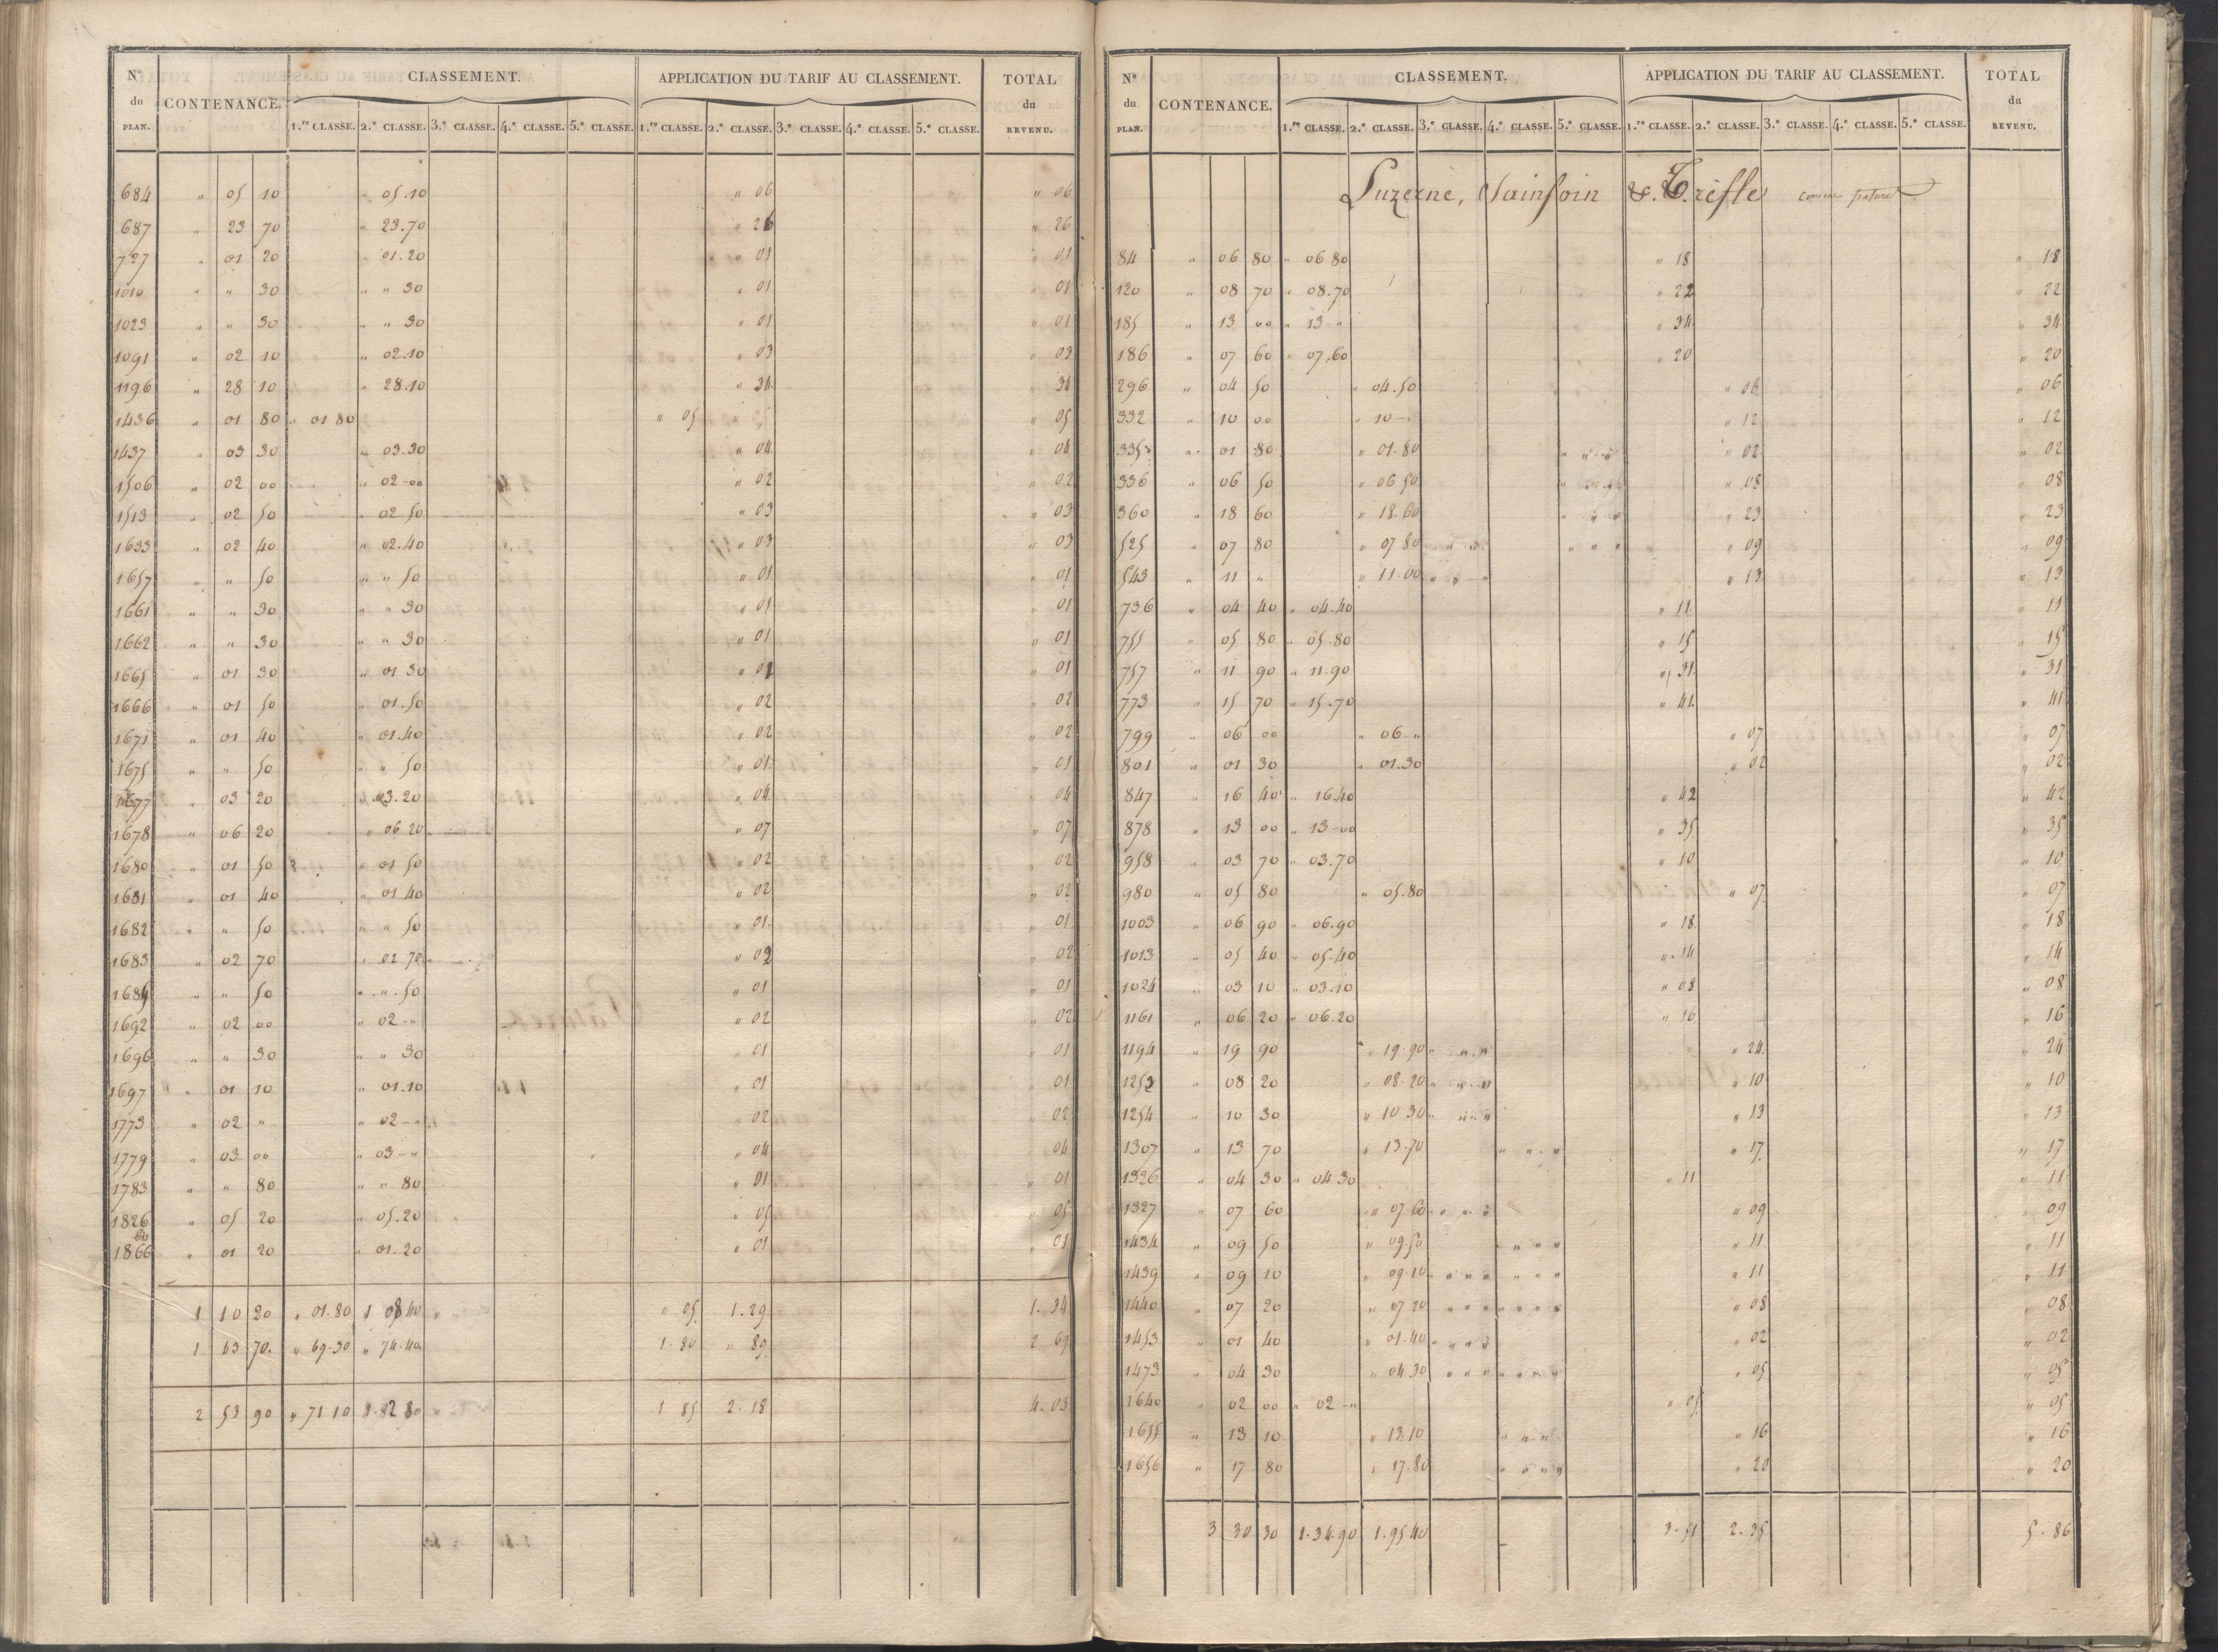 N.os du PLAN. CONTENANCE. CLASSEMENT. APPLICATION DU TARIF AU CLASSEMENT. TOTAL du REVENU.
1.re CLASSE. 2.e CLASSE. 3.e CLASSE. 4.e CLASSE. 5.e CLASSE. 1.re CLASSE. 2.e CLASSE. 3.e CLASSE. 4.e CLASSE. 5.e CLASSE.
684 " 05 10 " 05.10 " 06 " 06
687 " 23 70 " 23.70 " 26 " 26
727 " 01 20 " 01.20 " 01 " 01
1010 " " 30 " " 30 " 01 " 01
1023 " " 30 " " 30 " 01 " 01
1091 " 02 10 " 02.10 " 03 " 03
1196 " 28 10 " 28.10 " 34 " 34
1436 " 01 80 " 01 80 " 05 " 05
1437 " 03 30 " 03.30 " 04 " 04
1506 " 02 00 " 02-00 " 02 " 02
1513 " 02 50 " 02 50 " 03 " 03
1633 " 02 40 " 02.40 " 03 " 03
1657 " " 50 " " 50 " 01 " 01
1661 " " 30 " " 30 " 01 " 01
1662 " " 30 " " 30 " 01 " 01
1665 " 01 30 " 01 30 " 01 " 01
1666 " 01 50 " 01.50 " 02 " 02
1671 " 01 40 " 01.40 " 02 " 02
1675 " " 50 " " 50 " 01 " 01
1677 " 03 20 " 03.20 " 04 " 04
1678 " 06 20 " 06 20 " 07 " 07
1680 " 01 50 " 01 50 " 02 " 02
1681 " 01 40 " 01 40 " 02 " 02
1682 " " 50 " " 50 " 01 " 01
1683 " 02 70 " 02 70 " 02 " 02
1684 " " 50 " " 50 " 01 " 01
1692 " 02 00 " 02-" " 02 " 02
1696 " " 30 " " 30 " 01 " 01
1697 " 01 10 " 01.10 " 01 " 01
1773 " 02 " " 02-" " 02 " 02
1779 " 03 00 " 03-" " 04 " 04
1783 " " 80 " " 80 " 01 " 01
1826 " 05 20 " 05.20 " 05 " 05
1866 bis " 01 20 " 01.20 " 01 " 01
1 10 20 " 01.80 1 08 40 " 05 1.29 1.34
1 43 70 " 69.30 " 74.40 1.80 " 89 2 69
2 53 90 " 71 10 1.82 80 1 85 2.18 4.03
N.os du PLAN. CONTENANCE. CLASSEMENT. APPLICATION DU TARIF AU CLASSEMENT. TOTAL du REVENU.
1.re CLASSE. 2.e CLASSE. 3.e CLASSE. 4.e CLASSE. 5.e CLASSE. 1.re CLASSE. 2.e CLASSE. 3.e CLASSE. 4.e CLASSE. 5.e CLASSE.
Luzerne, Sainfoin & Trefle comme pature
84 " 06 80 " 06 80 " 18 " 18
120 " 08 70 " 08.70 " 22 " 22
185 " 13 00 " 13-" " 34 " 34
186 " 07 60 " 07.60 " 20 " 20
296 " 04 50 " 04.50 " 06 " 06
332 " 10 00 " 10-" " 12 " 12
335 " 01 80 " 01.80 " 02 " 02
336 " 06 50 " 06 50 " 08 " 08
360 " 18 60 " 18.60 " 23 " 23
525 " 07 80 " 07 80 " 09 " 09
543 " 11 " " 11.00 " 13 " 13
736 " 04 40 " 04.40 " 11 " 11
755 " 05 80 " 05.80 " 15 " 15
757 " 11 90 " 11.90 " 31 " 31
773 " 15 70 " 15.70 " 41 " 41
799 " 06 00 " 06-" " 07 " 07
801 " 01 30 " 01.30 " 02 " 02
847 " 16 40 " 16.40 " 42 " 42
878 " 13 00 " 13-00 " 35 " 35
958 " 03 70 " 03.70 " 10 " 10
980 " 05 80 " 05.80 " 07 " 07
1003 " 06 90 " 06.90 " 18 " 18
1013 " 05 40 " 05.40 " 14 " 14
1024 " 03 10 " 03.10 " 08 " 08
1161 " 06 20 " 06.20 " 16 " 16
1194 " 19 90 " 19.90 " 24 " 24
1253 " 08 20 " 08.20 " 10 " 10
1254 " 10 30 " 10 30 " 13 " 13
1307 " 13 70 " 13.70 " 17 " 17
1326 " 04 30 " 04 30 " 11 " 11
1327 " 07 60 " 07 60 " 09 " 09
1434 " 09 50 " 09 50 " 11 " 11
1439 " 09 10 " 09.10 " 11 " 11
1440 " 07 20 " 07 20 " 08 " 08
1453 " 01 40 " 01.40 " 02 " 02
1473 " 04 30 " 04 30 " 05 " 05
1640 " 02 00 " 02-" " 05 " 05
1655 " 13 10 " 13.10 " 16 " 16
1656 " 17 80 " 17.80 " 20 " 20
3 30 30 1.34.90 1.95 40 3.51 2.35 5.86